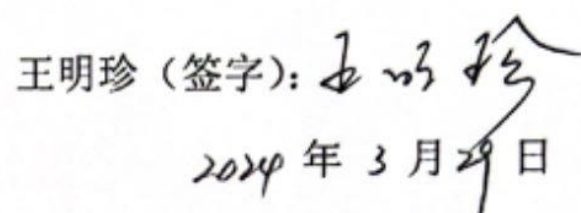 王明珍（签字）：王明珍
2024 年 3 月 29 日